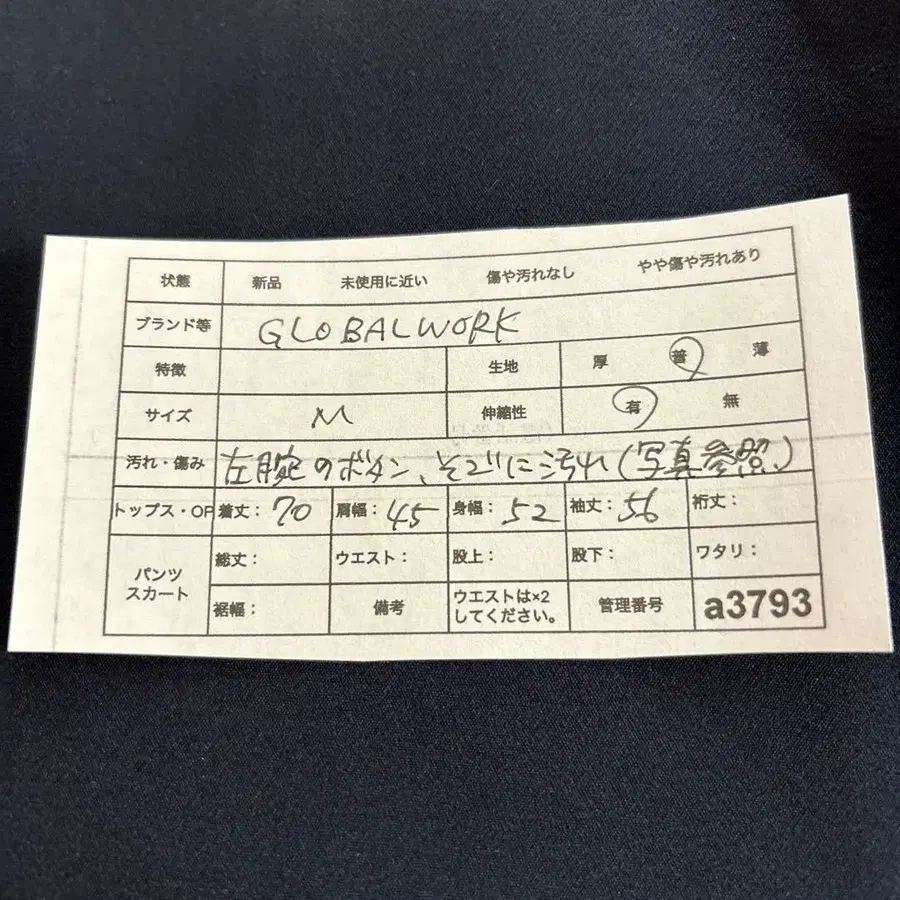 状態 新品 未使用に近い 傷や汚れなし やや傷や汚れあり
ブランド等 GLOBALWORK
特徴 生地 厚 普 薄
サイズ M 伸縮性 有 無
汚れ・傷み 左腕のボタン、そでに汚れ(写真参照)
トップス・OP 着丈：70 肩幅：45 身幅：52 袖丈：56 裄丈：
パンツ スカート 総丈： ウエスト： 股上： 股下： ワタリ：
裾幅： 備考 ウエストは×2 してください。 管理番号 a3793